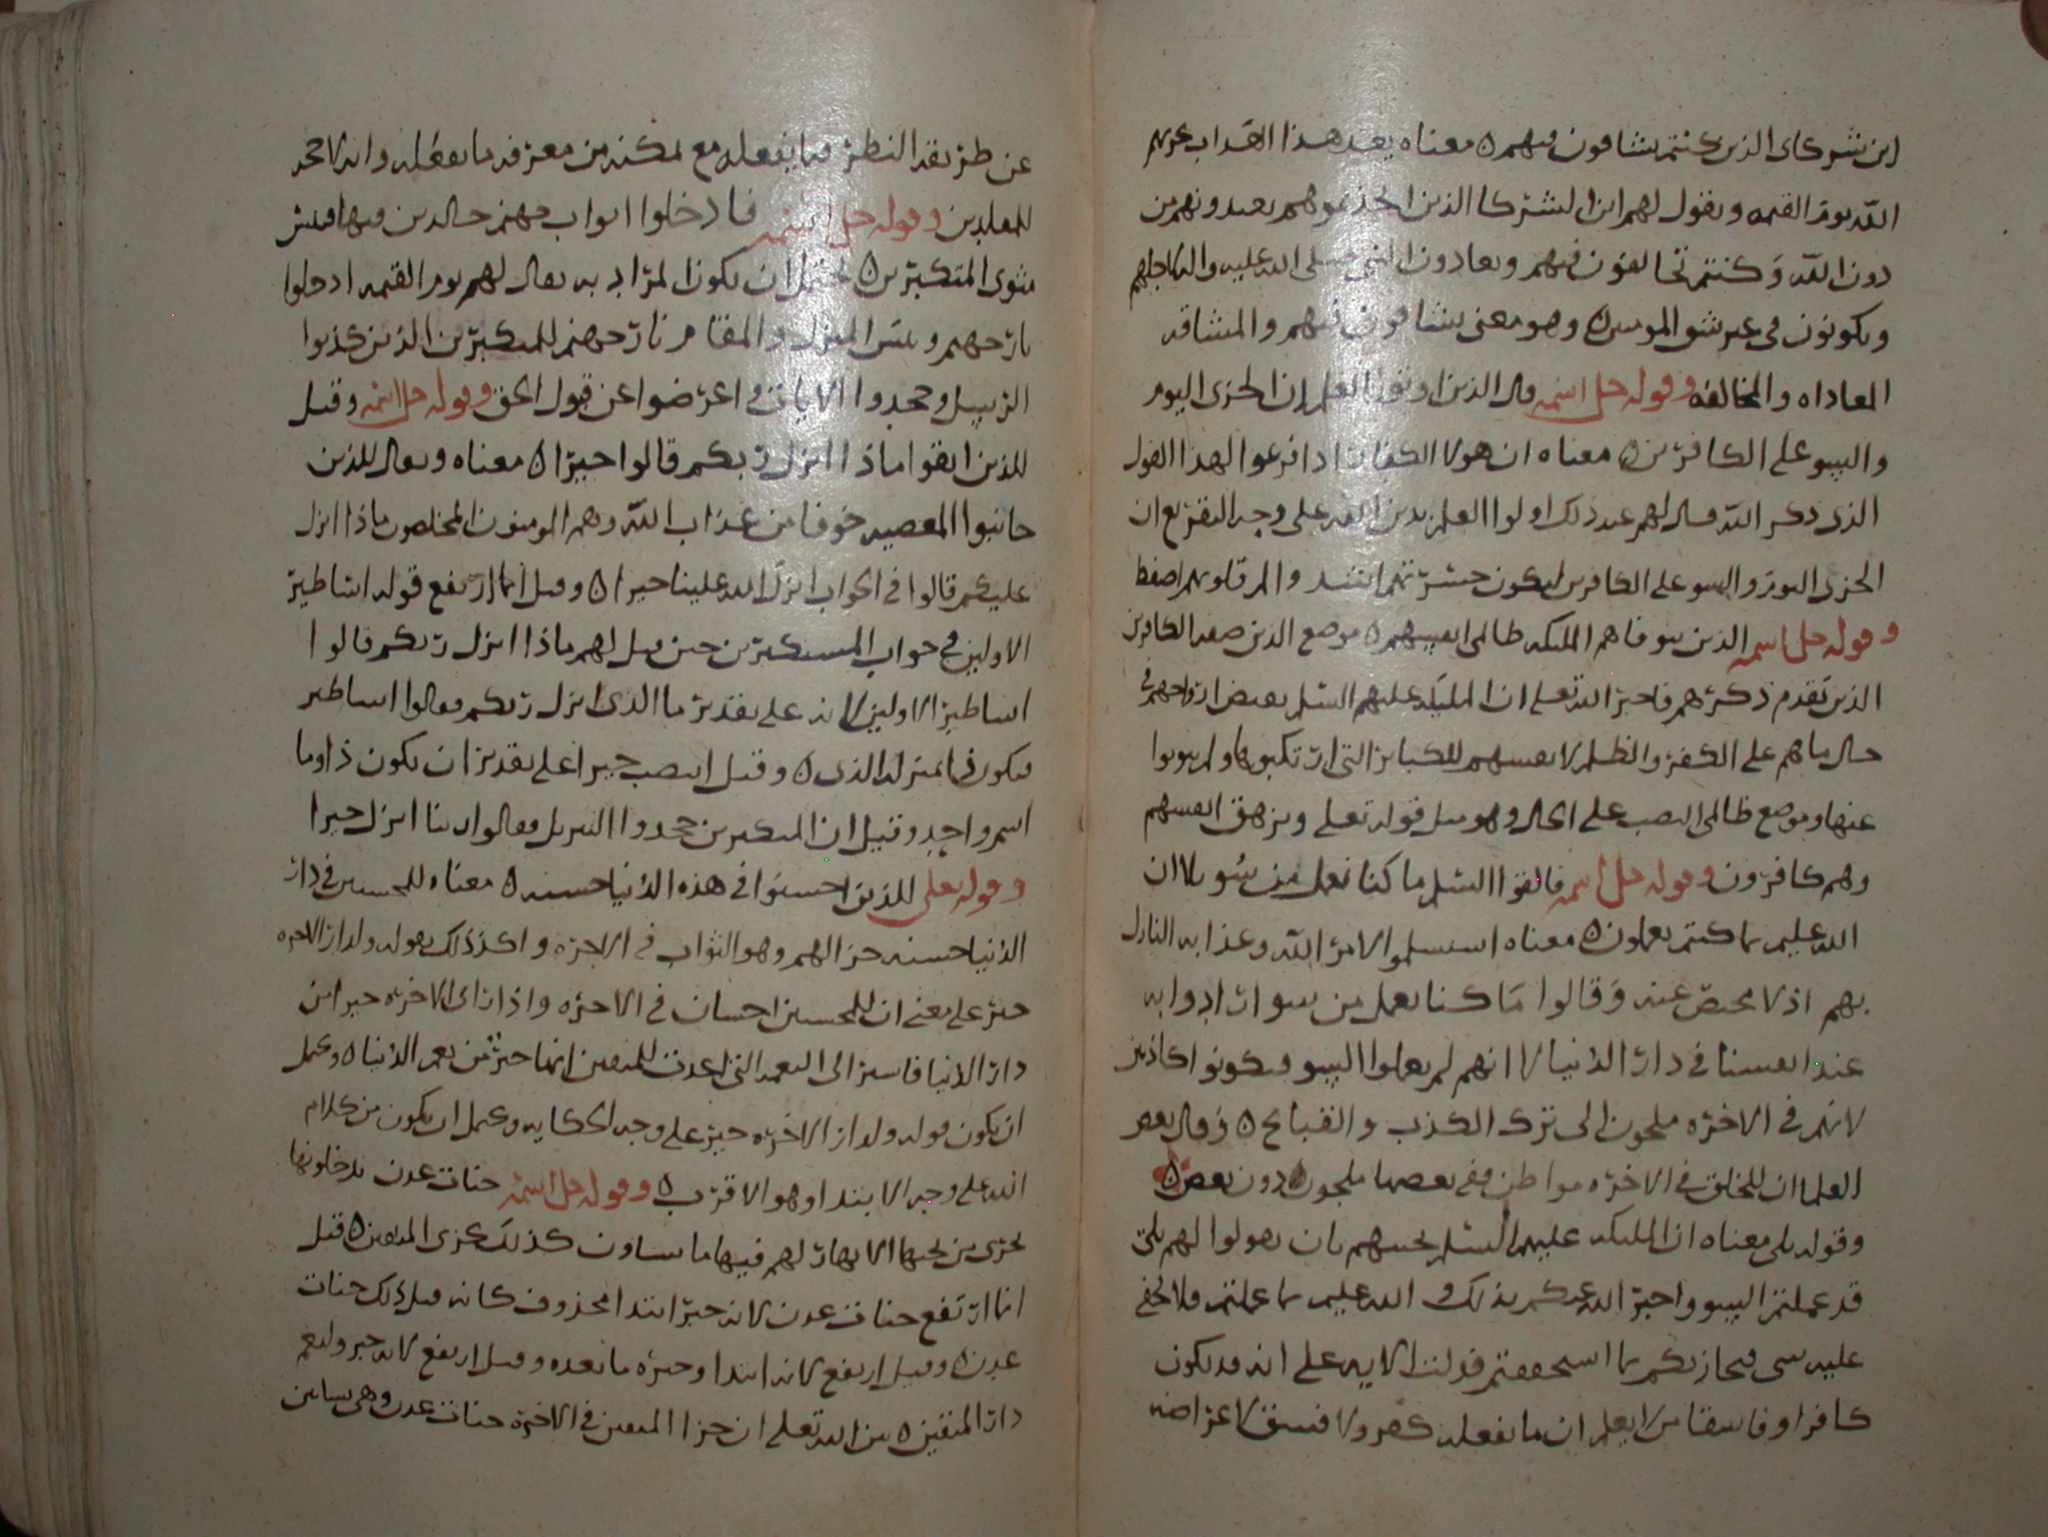 اين شركاى الذين كنتم تشاقون فيهم ٥ معناه بعد هذا العذاب يخزيهم
الله يوم القيمه ويقول لهم اين الشركا الذين اتخذتموهم تعبدونهم من
دون الله وكنتم تخالفون فيهم وتعادون النبى صلى الله عليه واله لاجلهم
ويكونون فى غير شق المومنين ٥ وهو معنى تشاقون فيهم والمشاقه
المعاداه والمخالفه وقوله جل اسمه قال الذين اوتوا العلم ان الخزى اليوم
والسو على الكافرين ٥ معناه ان هولا الكفار اذا قرعوا بهذا القول
الذى ذكر الله قال لهم عند ذلك اولوا العلم بدين الله على وجه التقريع ان
الخزى اليوم والسو على الكافرين ليكون حسرتهم اشد والم قلوبهم
وقوله جل اسمه الذين تتوفاهم المليكه ظالمى انفسهم ٥ موضع الذين صفه الكافرين
الذين تقدم ذكرهم فاخبر الله تعلى ان المليكه عليهم السلم يقبض ارواحهم فى
حال ماهم على الكفر والظلم لانفسهم للكباير التى ارتكبوها ولم يتوبوا
عنها وموضع ظالمى النصب على الحال وهو مثل قوله تعلى وتزهق انفسهم
وهم كافرون وقوله جل اسمه فالقوا السلم ما كنا نعمل من سو بلا ان
الله عليم بما كنتم تعملون ٥ معناه استسلموا لامر الله وعذابه النازل
بهم اذ لا محيص عنه وقالوا ما كنا نعمل من سو ارادوا به
عند انفسنا فى دار الدنيا لا انهم لم يعملوا السو فيكونوا كاذبين
لانهم فى الاخره ملجون الى ترك الكذب والقبايح ٥ وقال بعض
العلما ان للخلق فى الاخره مواطن ففى بعضها ملجون دون بعض ٥
وقوله بلى معناه ان المليكه عليهم السلم بان يقولوا لهم بلى
قد عملتم السو واخبر الله عنكم بذلك والله عليم بما عملتم فلا يخفى
عليه شى فيجازيكم بما استحققتم فدلت الايه على انه قد يكون
كافرا وفاسقا من لا يعلم ان ما يفعله كفر ولا فسق لاعراضه
عن طريقه النظر فيما يفعله مع تمكنه من معرفه ما يفعله وانه لا
للمعلدين وقوله جل اسمه فادخلوا ابواب جهنم خالدين فيها فلبئس
مثوى المتكبرين ٥ يحتمل ان يكون المراد به يقال لهم يوم القيمه ادخلوا
نار جهنم وبئس المنزل والمقام نار جهنم للمتكبرين الذين كذبوا
الرسل وجحدوا الايات واعرضوا عن قول الحق وقوله جل اسمه وقيل
للذين اتقوا ماذا انزل ربكم قالوا خيرا ٥ معناه ويقال للذين
جانبوا المعصيه خوفا من عذاب الله وهم المومنون المخلصون ماذا انزل
عليكم قالوا فى الجواب انزل الله علينا خيرا ٥ وقيل انما ارتفع قوله اساطير
الاولين فى جواب المستكبرين حين قيل لهم ماذا انزل ربكم قالوا
اساطير الاولين لانه على تقدير ما الذى انزل ربكم فقالوا اساطير
فيكون ذا بمنزله الذى ٥ وقيل انتصب خيرا على تقدير ان يكون ذا وما
اسم واحد وقيل ان المتكبرين جحدوا التنزيل فقالوا ربنا انزل خيرا
وقوله تعلى للذين احسنوا فى هذه الدنيا حسنه ٥ معناه للمحسنين فى دار
الدنيا حسنه جزا لهم وهو الثواب فى الاخره واكد ذلك بقوله ولدار الاخره
خير على معنى ان للمحسنين احسان فى الاخره واذ اراى الاخره خير من
دار الدنيا فاشير الى النعمه التى اعدت للمتقين انها خير من نعم الدنيا ٥ ويحتمل
ان يكون قوله ولدار الاخره خير على وجه الحكايه ويحتمل ان يكون من كلام
الله على وجه الابتدا وهو الاقرب ٥ وقوله جل اسمه جنات عدن يدخلونها
تجرى من تحتها الانهار لهم فيها ما يشاون كذلك يجزى المتقين ٥ قيل
انما ارتفع جنات عدن لانه خبر ابتدا محذوف كانه قيل ذلك جنات
عدن ٥ وقيل ارتفع لانه ابتدا وخبره ما بعده وقيل ارتفع لانه خبر ولنعم
دار المتقين ٥ بين الله تعلى ان جزا المتقين فى الاخره جنات عدن وهى بساتين